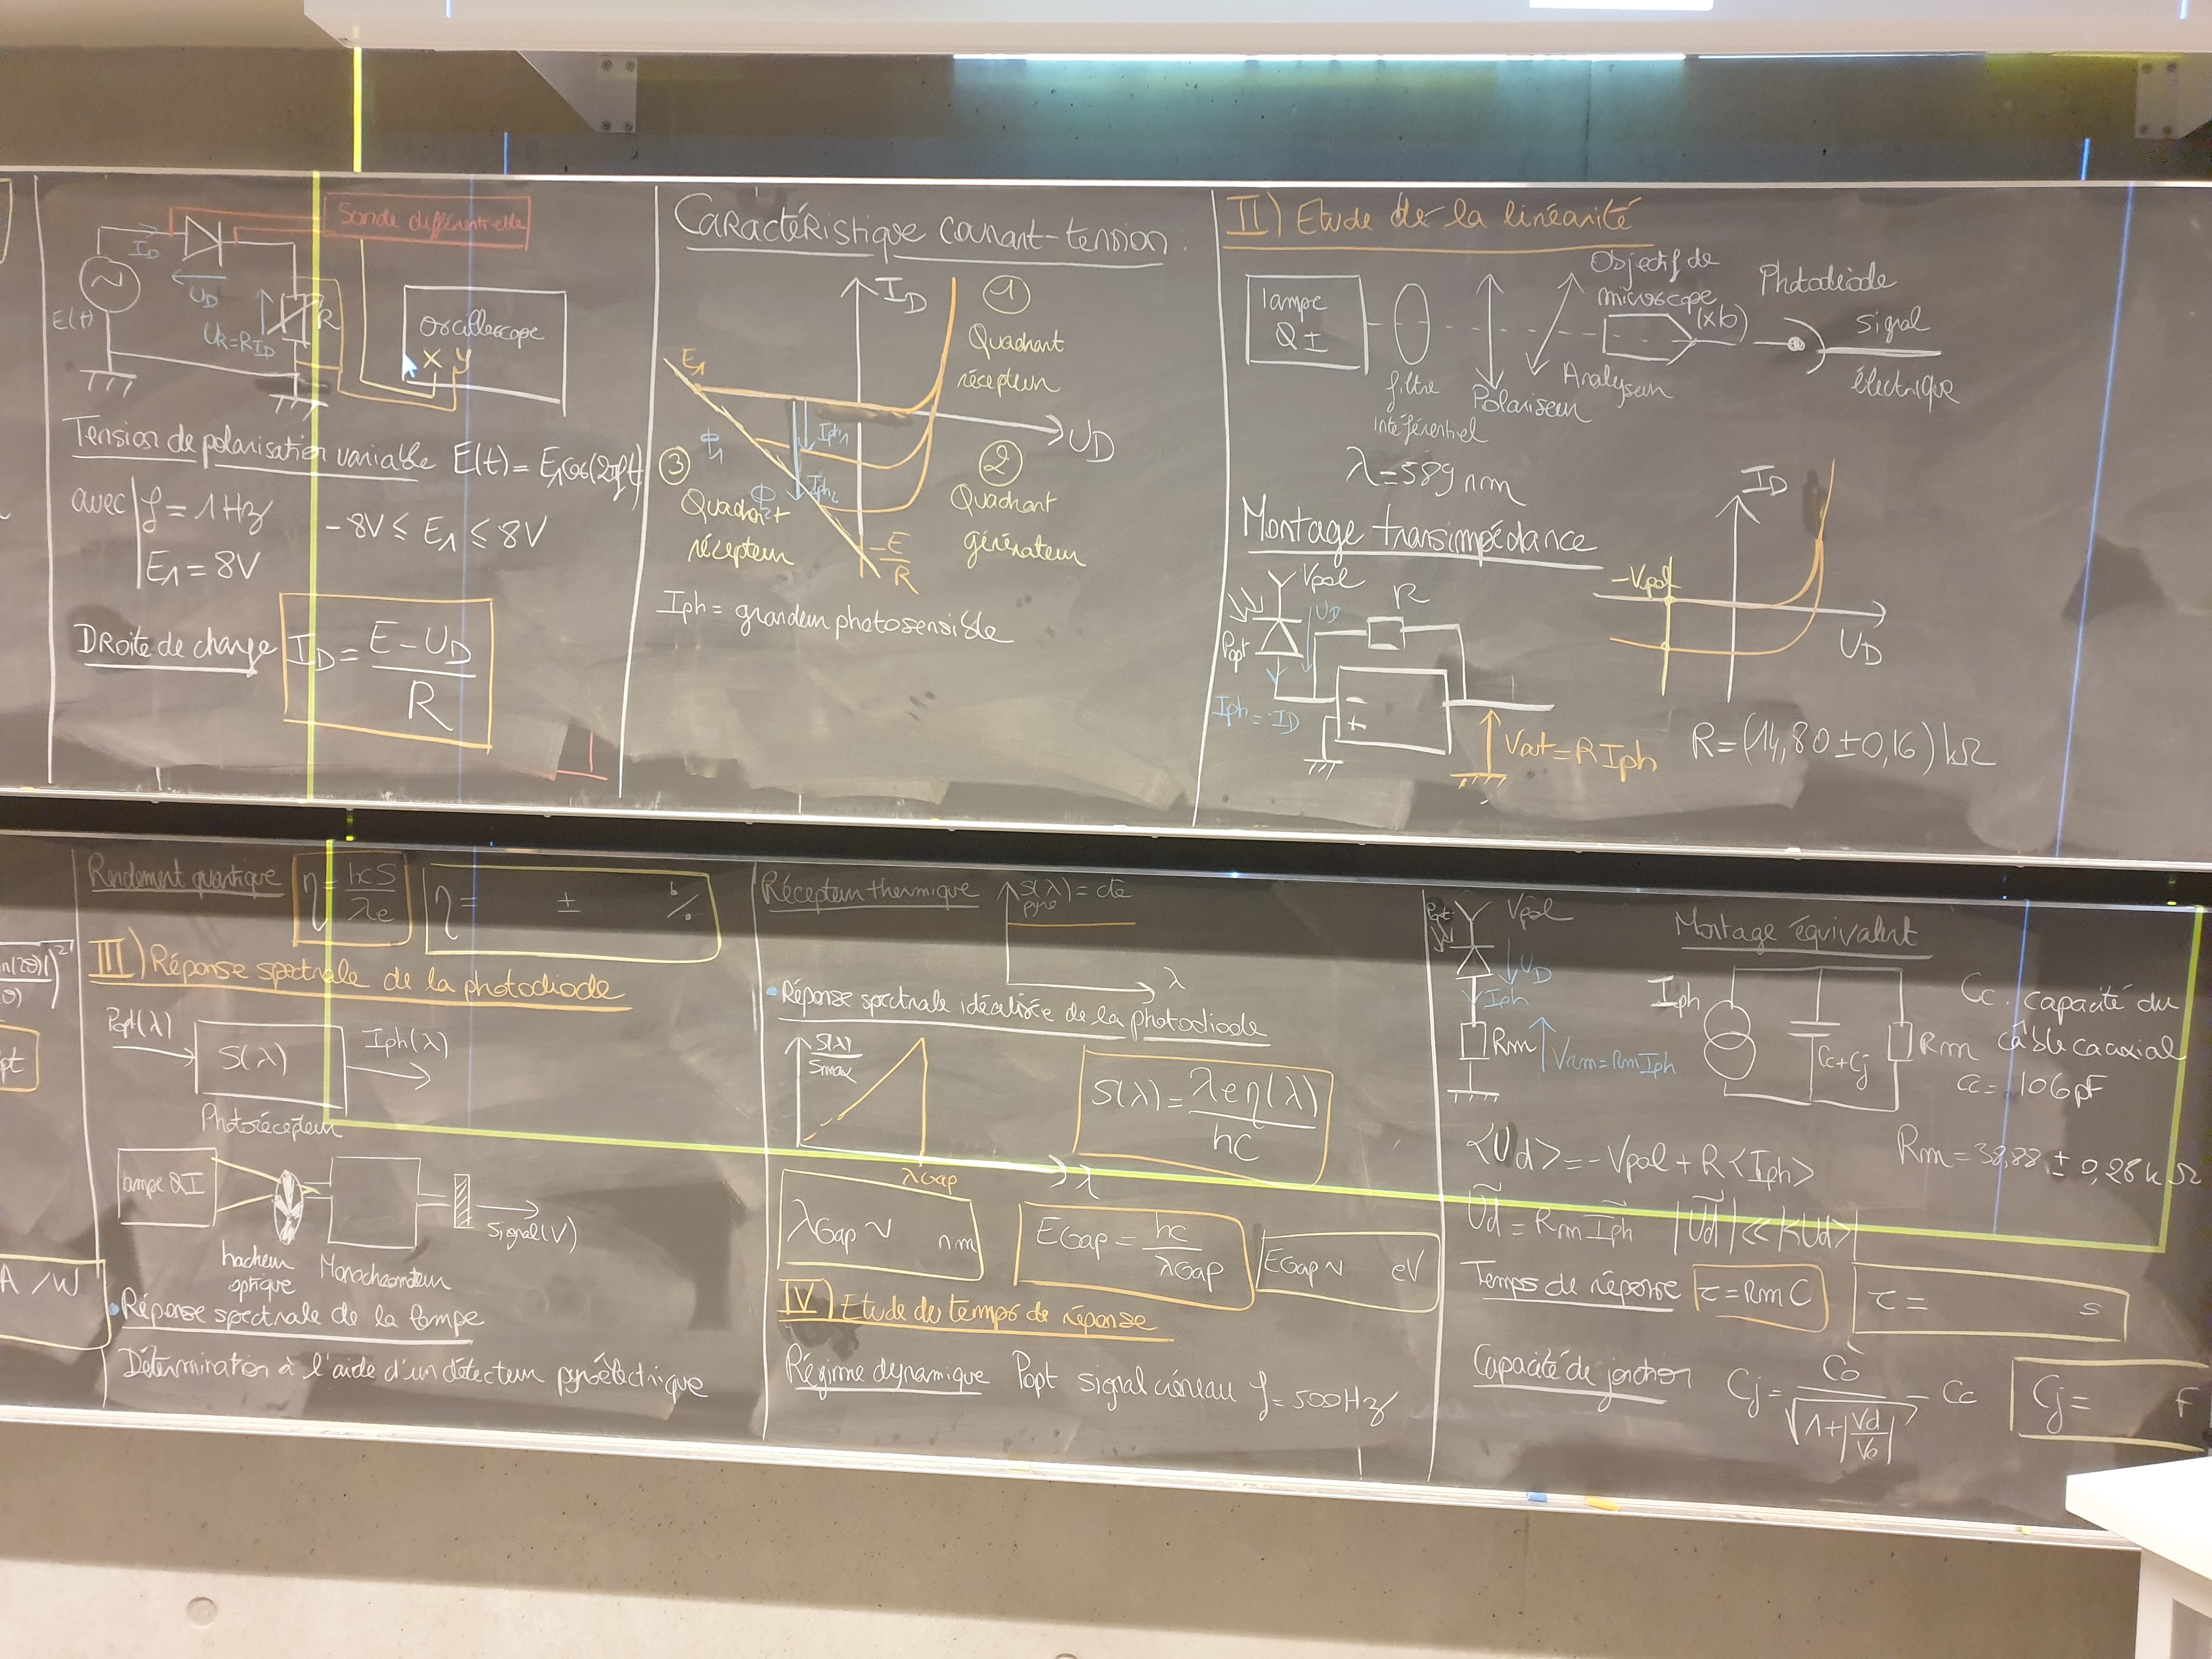 Sonde différentielle
ID
UD
E(t)
UR=RID
R
oscilloscope
X Y
Tension de polarisation variable E(t)= E1cos(2πft)
avec f = 1Hz
-8V ≤ E1 ≤ 8V
E1 = 8V
Droite de charge ID = E-UD / R
Caractéristique courant-tension
ID
1
Quadrant
récepteur
E1
UD
Iph1
ϕ1
3
2
Iph2
ϕ2
Quadrant
récepteur
Quadrant
générateur
-E/R
Iph = grandeur photosensible
II) Etude de la linéarité
lampe
QI
filtre
intéférentiel
Polariseur
Analyseur
Objectif de
microscope
Photodiode
signal
électrique
λ=589 nm
Montage transimpédance
Vpol
UD
R
Popt
Iph=-ID
-
+
Vout=R Iph
ID
-Vpol
UD
R=(14,80±0,16)kΩ
n(2θ)
θ)
2
pt
A/W
Rendement quantique η = hcS / λe
η= ± %
III) Réponse spectrale de la photodiode
Popt(λ)
S(λ)
Iph(λ)
Photorécepteur
lampe QI
hacheur
optique
Monochromateur
Signal(V)
• Réponse spectrale de la lampe
Détermination à l'aide d'un détecteur pyroélectrique
Récepteur thermique
S(λ) = cte
pyro
λ
• Réponse spectrale idéalisée de la photodiode
S(λ) / Smax
λGap
λ
S(λ)= λeη(λ) / hc
λGap ~ nm
EGap = hc / λGap
EGap ~ eV
IV) Etude du temps de réponse
Régime dynamique Popt signal créneau f=500Hz
Popt
Vpol
UD
Iph
Rm
Vrm=RmIph
Montage équivalent
Iph
Cc+Cj
Rm
Cc: capacité du
câble coaxial
Cc= 106pF
<Ud>=-Vpol+R<Iph>
Rm=38,88 ± 0,28kΩ
Ũd = Rm Ĩph |Ũd| << |<Ud>|
Temps de réponse τ=RmC
τ= s
Capacité de jonction Cj = C0 / √(1+|Vd/V0|) - Cc
Cj= F